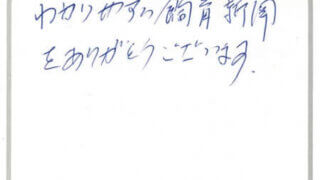 わかりやすい飼育新聞
をありがとうございます.